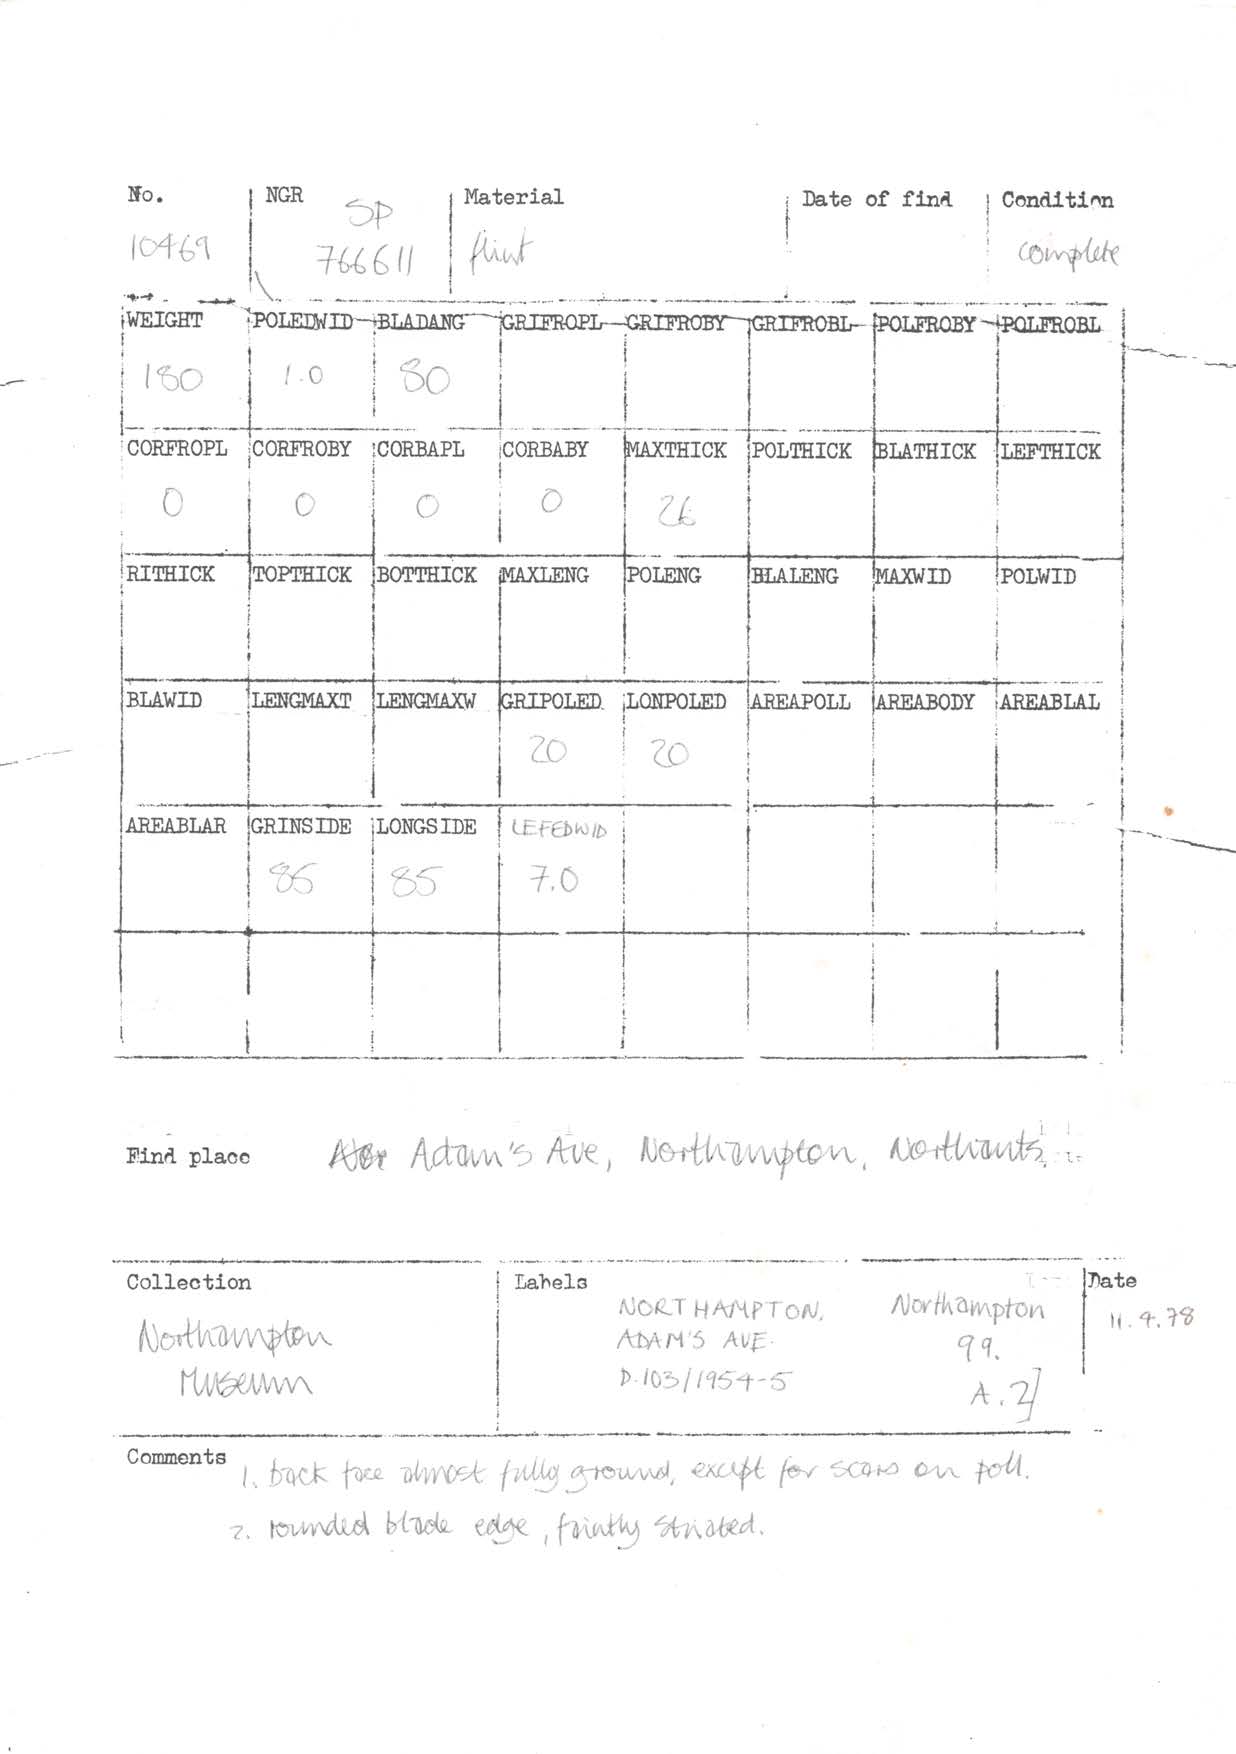 No. NGR Material Date of find Condition
SP
10469 766611 flint complete
WEIGHT POLEDWID BLADANG GRIFROPL GRIFROBY GRIFROBL POLFROBY POLFROBL
180 1.0 80
CORFROPL CORFROBY CORBAPL CORBABY MAXTHICK POLTHICK BLATHICK LEFTHICK
0 0 0 0 26
RITHICK TOPTHICK BOTTHICK MAXLENG POLENG BLALENG MAXWID POLWID
BLAWID LENGMAXT LENGMAXW GRIPOLED LONPOLED AREAPOLL AREABODY AREABLAL
20 20
AREABLAR GRINSIDE LONGSIDE LEFEDWID
85 85 7.0
Find place Adam's Ave, Northampton, Northants.
Collection Labels Date
NORTHAMPTON. Northampton 11.4.78
Northampton ADAM'S AVE. 99.
Museum D.103/1954-5 A.2]
Comments 1. back face almost fully ground, except for scars on poll.
2. rounded blade edge, faintly striated.